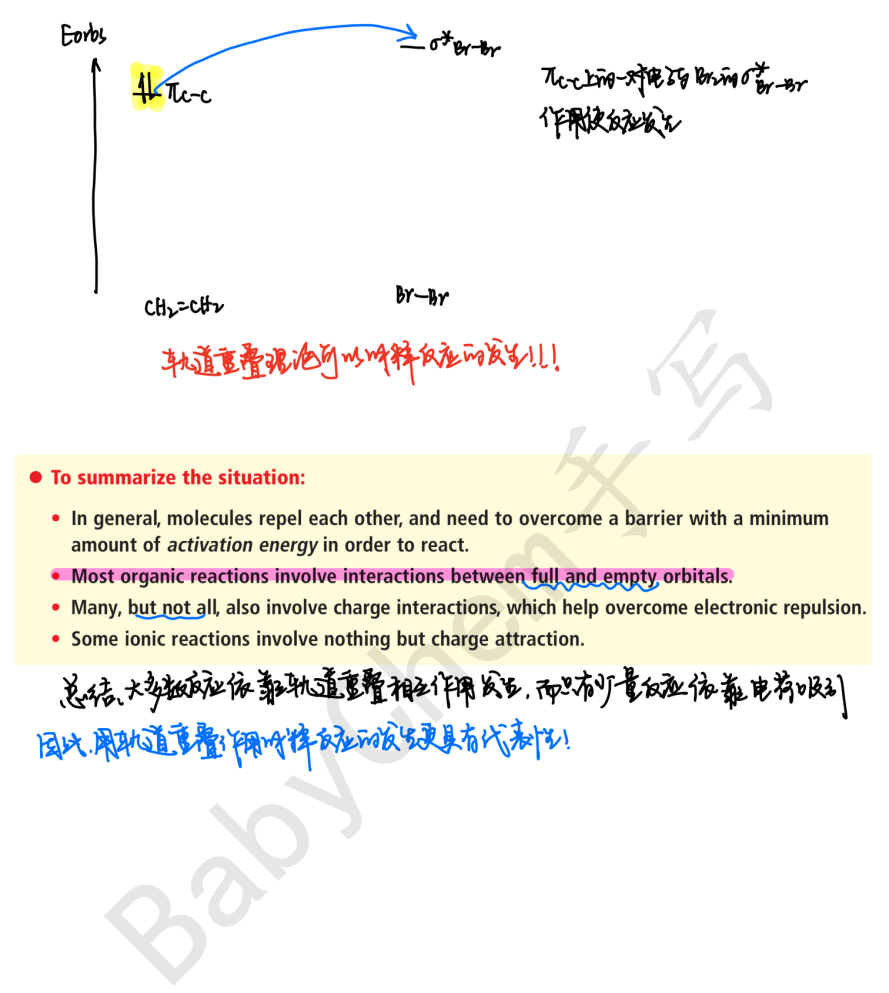 Eorbs
σ*Br-Br
πC-C
πC-C上的一对电子与Br₂的σ*Br-Br
作用使反应发生
CH₂=CH₂
Br-Br
轨道重叠理论可以解释反应的发生!!!
● To summarize the situation:
• In general, molecules repel each other, and need to overcome a barrier with a minimum
amount of activation energy in order to react.
• Most organic reactions involve interactions between full and empty orbitals.
• Many, but not all, also involve charge interactions, which help overcome electronic repulsion.
• Some ionic reactions involve nothing but charge attraction.
总结、大多数反应依靠轨道重叠相互作用发生,而只有少量反应依靠电荷吸引
因此、用轨道重叠作用解释反应的发生更具有代表性!
BabyChem手写